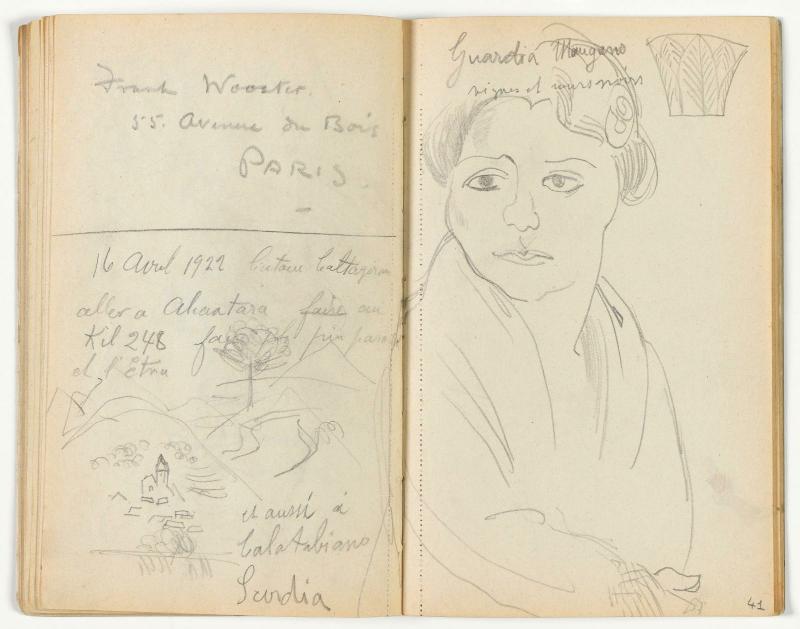 Frank Wooster.
55. Avenue du Bois
PARIS.
16 Avril 1922
aller a Alcantara faire au
Kil 248 pin paraso
et l'Etna
et aussi à
Calatabiano
Scordia
Guardia Mangano
vignes et murs noirs
41